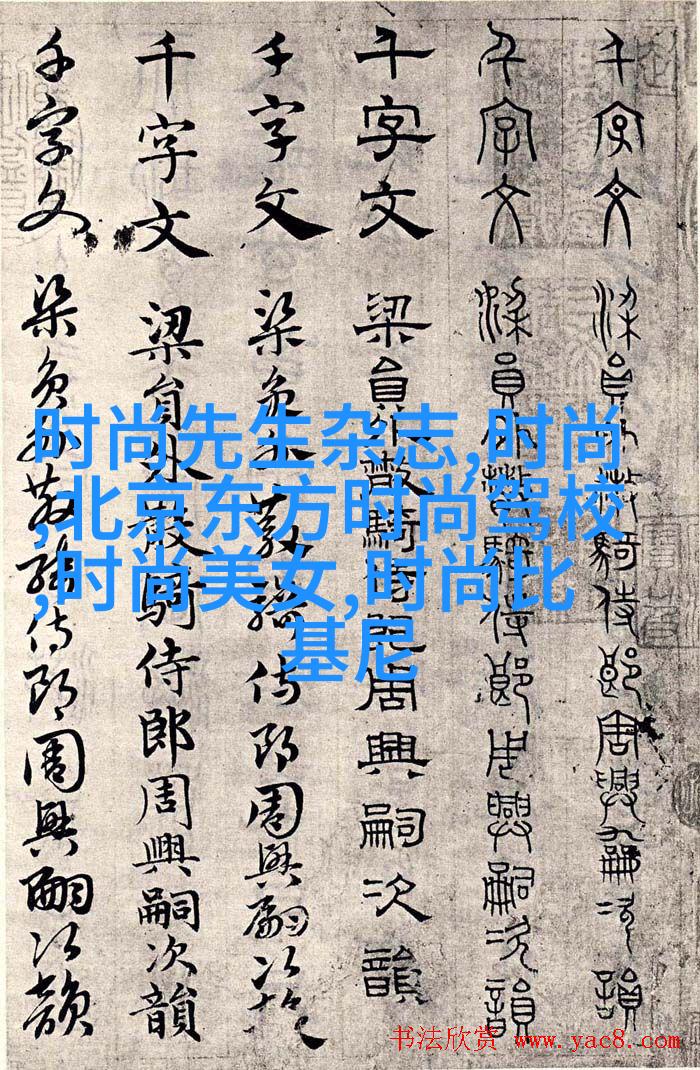 千字文 梁員外散騎侍郎周興嗣次韻
千字文 梁員外散騎侍郎周興嗣次韻
千字文 梁員外散騎侍郎周興嗣次韻
千字文 梁員外散騎侍郎周興嗣次韻
千字文 梁員外散騎侍郎周興嗣次韻
千字文 梁員外散騎侍郎周興嗣次韻
时尚先生杂志,时尚
,北京东方时尚驾校
,时尚美女,时尚比
基尼
书法欣赏 www.yac8.com